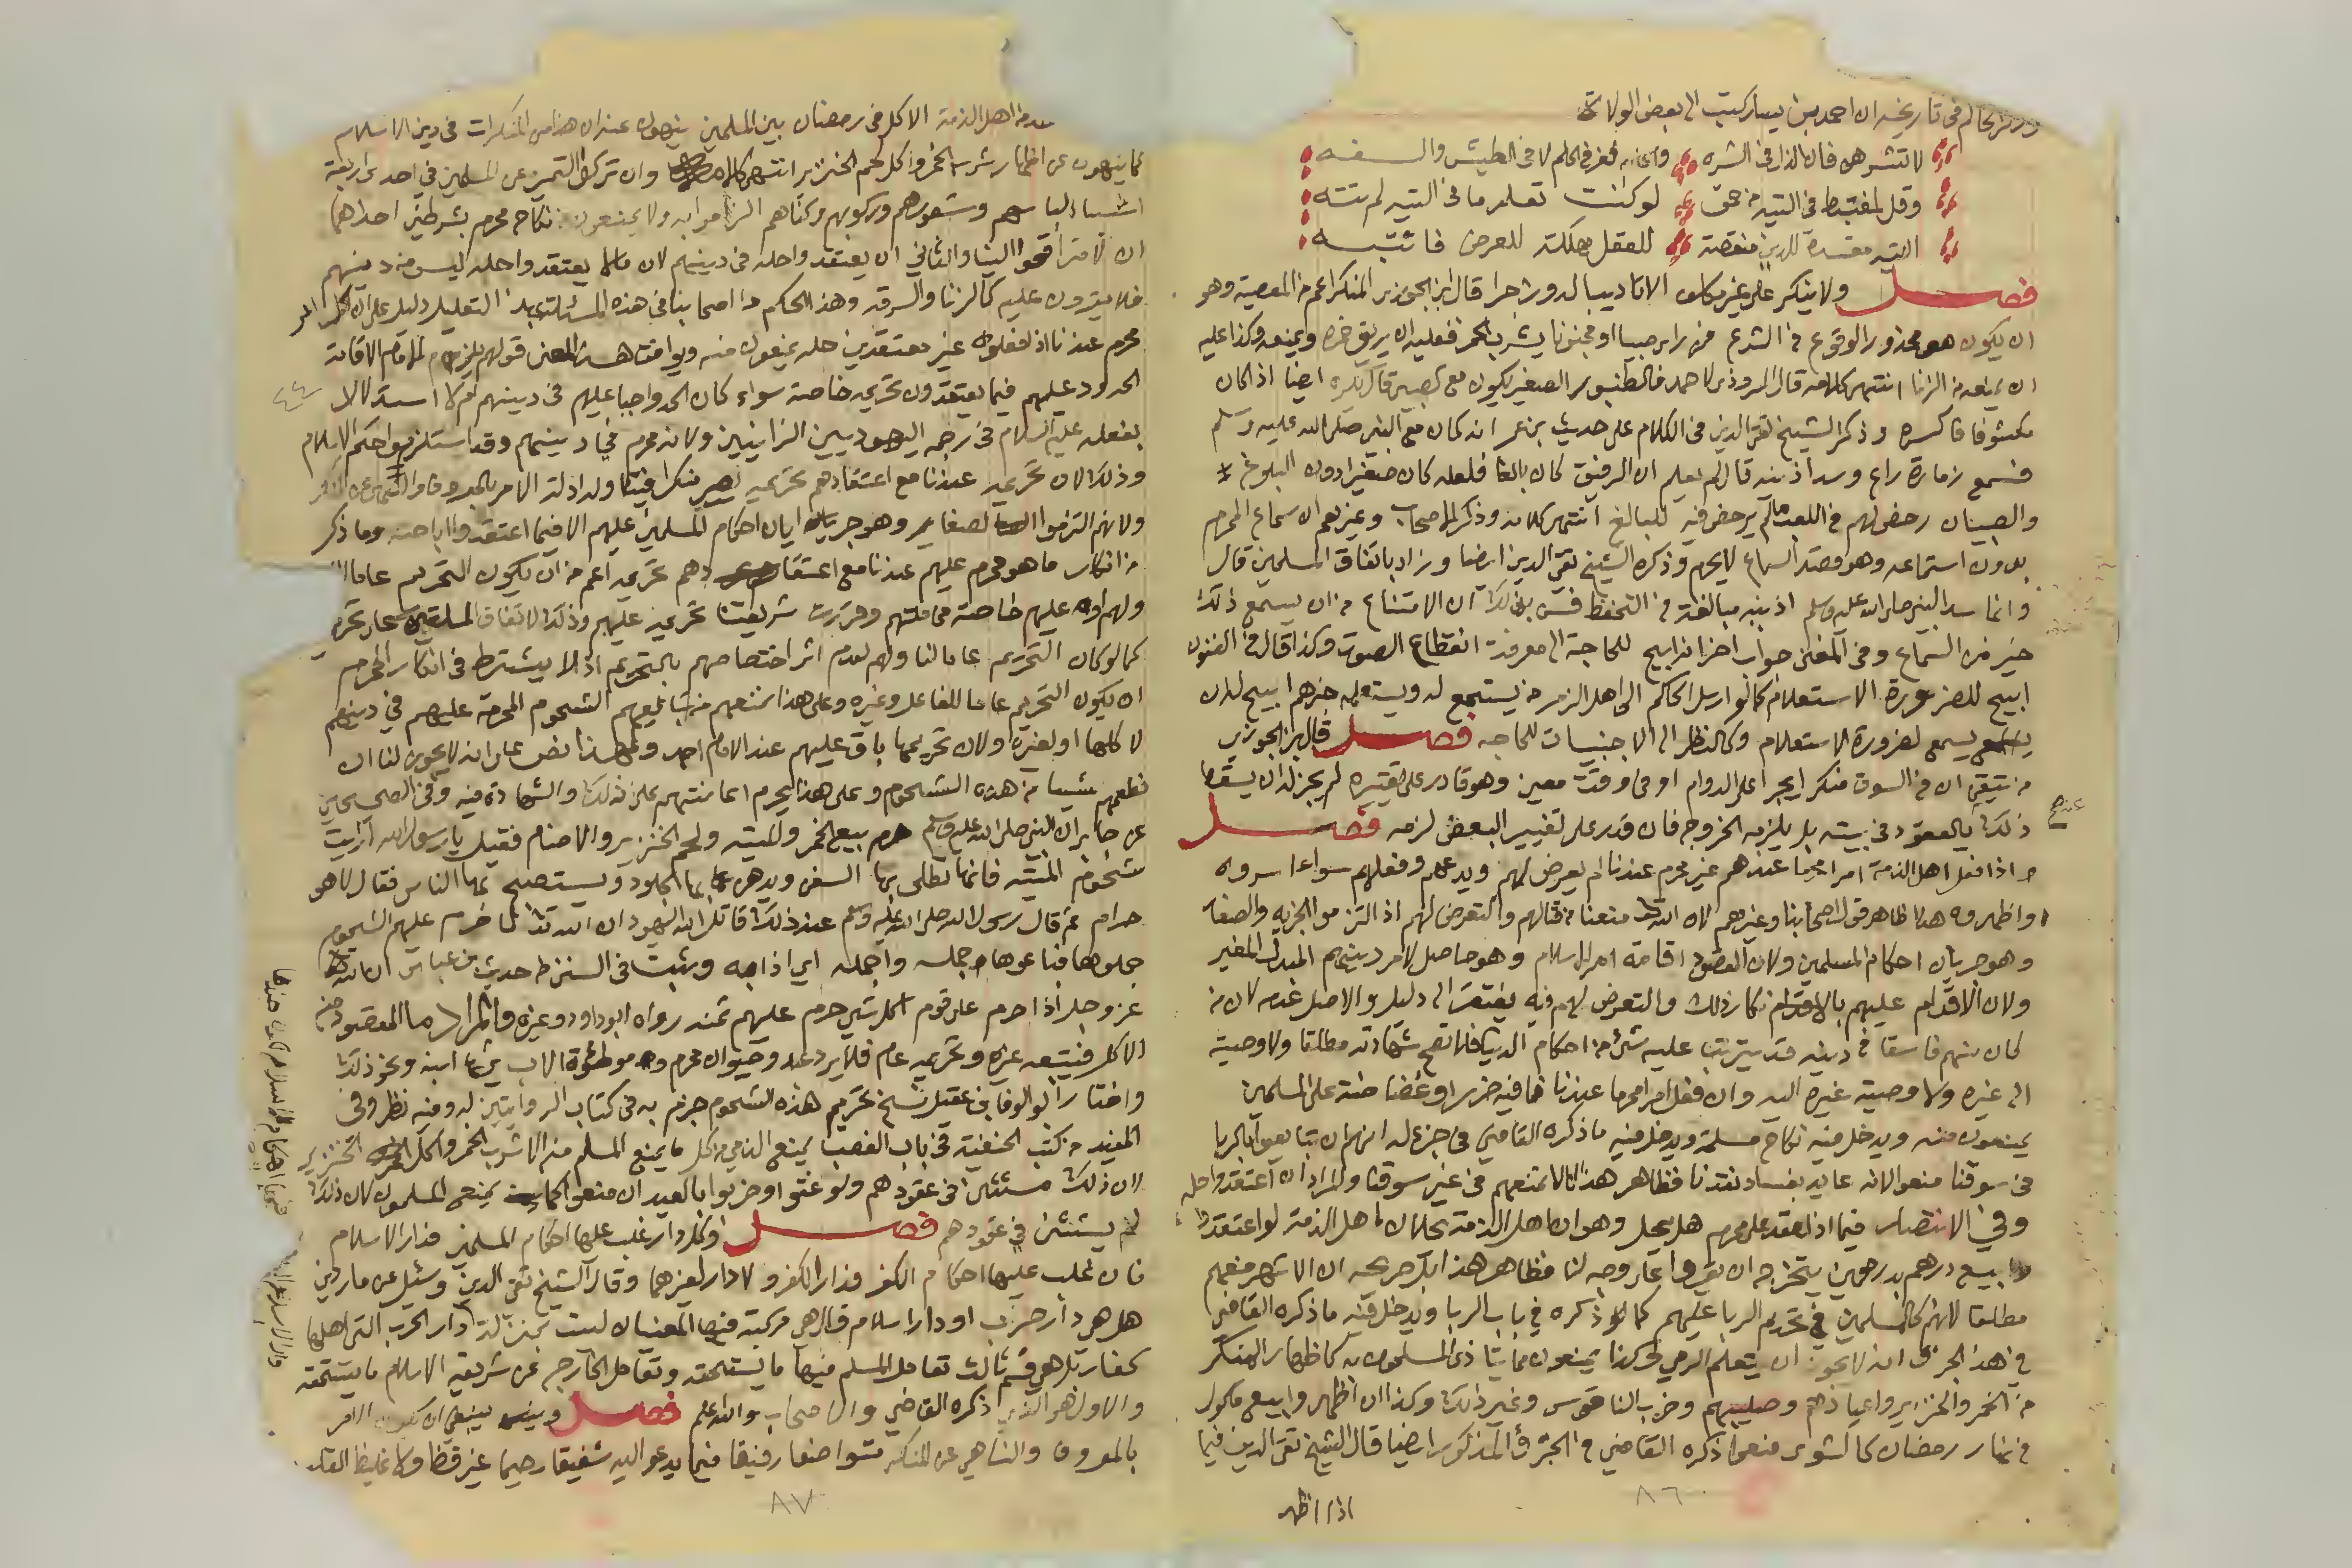 وذكر الحاكم في تاريخه ان احمد بن سيار كتب الى بعض الولاة
لا تشرهن فان الذل في الشره والعز في الحلم لا في الطيش والسفه
وقل لمغتبط في التيه من حمق لو كنت تعلم ما في التيه لم تته
التيه مفسدة للدين منقصة للعقل مهلكة للعرض فانتبه
فصل ولا ينكر على غير مكلف الا تاديبا له وزجرا قال ابن الجوزي المنكر اعم من المعصية وهو
ان يكون محذور الوقوع في الشرع فمن راى صبيا او مجنونا يشرب الخمر فعليه ان يريق خمره ويمنعه وكذا عليه
ان يمنعه من الزنا انتهى كلامه قال المروذي لاحمد فالطنبور الصغير يكون مع الصبي قال يكره ايضا اذا كان
مكشوفا فاكسره وذكر الشيخ تقي الدين في الكلام على حديث بن عمر انه كان مع النبي صلى الله عليه وسلم
فسمع زمارة راع وسد اذنيه قال لم يعلم ان الرفيق كان بالغا فلعله كان صغيرا دون البلوغ
والصبيان رخص لهم في اللعب ما لم يرخص فيه للبالغ انتهى كلامه وذكر الاصحاب وغيرهم ان سماع المحرم
بدون استماعه وهو قصد السماع لا يحرم وذكره الشيخ تقي الدين ايضا وزاد باتفاق المسلمين قال
وانما سد النبي صلى الله عليه وسلم اذنيه مبالغة في التحفظ فسن بذلك ان الامتناع من ان يسمع ذلك
خير من السماع وفي المغني جواب اخر انه ابيح للحاجة الى معرفة انقطاع الصوت وكذا قال في الفنون
ابيح للضرورة الاستعلام كما لو ارسل الحاكم الى اهل الزمر من يستمع له ويستعلم خبرهم ابيح له ان
يسمع لضرورة الاستعلام وكالنظر الى الاجنبيات للحاجه فصل قال ابن الجوزي
من تيقن ان في السوق منكرا يجري على الدوام او في وقت معين وهو قادر على تغييره لم يجز له ان يسقط
عنه صح
ذلك بالقعود في بيته بل يلزمه الخروج فان قدر على تغيير البعض لزمه فصل
واذا فعل اهل الذمة امرا محرما عندهم غير محرم عندنا لم يعرض لهم وندعهم وفعلهم سواء اسروه
او اظهروه هذا ظاهر قول اصحابنا وغيرهم لان الله منعنا من قتالهم والتعرض لهم اذا التزموا الجزيه والصغار
وهو جريان احكام المسلمين ولان المقصود اقامة امر الاسلام وهو حاصل لا امر دينهم المبدل المغير
ولان الاقدام عليهم بالالزام انكار ذلك والتعرض لهم فيه يفتقر الى دليل والاصل عدمه لان من
كان منهم فاسقا في دينه قد يترتب عليه شئ من احكام الدنيا فلا تصح شهادته مطلقا ولا وصيته
الى غيره ولا وصية غيره اليه وان فعل امرا محرما عندنا فما فيه ضرر او غضاضة على المسلمين
يمنعون منه ويدخل فيه نكاح مسلمة ويدخل فيه ما ذكره القاضي في جزء له انهم ان تبايعوا بالربا
في سوقنا منعوا لانه عايد بفساد نقدنا فظاهر هذا انا لا نمنعهم في غير سوقنا والمراد ان اعتقدوا حله
وفي الانتصار فيما اذا عقد على محرم هل يحل وهو ان اهل الذمة لو اعتقدوا
بيع درهم بدرهمين يتخرج ان يقروا على وجه لنا فظاهر هذا بل صريحه ان الاشهر منعهم
مطلقا لانهم كالمسلمين في تحريم الربا عليهم كما ذكره في باب الربا ويدخل فيه ما ذكره القاضي
في هذا الجزء انه لا يجوز ان يتعلم الرمي وكذا يمنعون مما يتاذى المسلمون به كاظهار المنكر
من الخمر والخنزير واعيادهم وصليبهم وضرب الناقوس وغير ذلك وكذا ان اظهروا بيع ماكول
في نهار رمضان كالشوى منعوا ذكره القاضي في الجزء المذكور ايضا قال الشيخ تقي الدين فيما
اذا اظهر
٨٦
من اهل الذمة الاكل في رمضان بين المسلمين ينهون عنه ان هذا من المنكرات في دين الاسلام
كما ينهون عن اظهار شرب الخمر واكل لحم الخنزير انتهى كلامه وان تركوا التميز عن المسلمين في احد اربعة
اشياء لباسهم وشعورهم وركوبهم وكناهم الزموا به ولا يمنعون من نكاح محرم بشرطين احدهما
ان لا يترافعوا الينا والثاني ان يعتقدوا حله في دينهم لان ما لا يعتقدوا حله ليس من دينهم
فلا يقرون عليه كالزنا والسرقه وهذا الحكم من اصحابنا في هذه المسئلة بهذا التعليل دليل على ان كل امر
محرم عندنا اذا فعلوه غير معتقدين حله يمنعون منه ويوافق هذا المعنى قولهم يلزم الامام اقامة
الحدود عليهم فيما يعتقدون تحريمه خاصة سواء كان الحد واجبا عليهم في دينهم ام لا استدلالا
بفعله عليه السلام في رجمه اليهوديين الزانيين ولانه محرم في دينهم وقد استلزموا حكم الاسلام
وذلك لان تحريمه عندنا مع اعتقادهم تحريمه يصير منكرا فيتناوله ادلة الامر بالمعروف والنهي عن المنكر
ولانهم التزموا الصغار وهو جريان احكام المسلمين عليهم الا فيما اعتقدوا اباحته وما ذكر
من انكار ما هو محرم عليهم عندنا مع اعتقادهم تحريمه اعم من ان يكون التحريم عاما لنا
ولهم او عليهم خاصة في ملتهم وقررت شريعتنا تحريمه عليهم وذلك لاتفاق الملتين على تحريمه
كما لو كان التحريم عاما لنا ولهم لعدم اثر اختصاصهم بالتحريم اذ لا يشترط في انكار المحرم
ان يكون التحريم عاما للفاعل وغيره وعلى هذا نمنعهم من تبايعهم الشحوم المحرمة عليهم في دينهم
لاكلها او لغيره ولان تحريمها باق عليهم عند الامام احمد ولهذا نص على انه لا يجوز لنا ان
نطعمهم شيئا من هذه الشحوم وعلى هذا يحرم اعانتهم على ذلك والشهادة فيه وفي الصحيحين
عن جابر ان النبي صلى الله عليه وسلم حرم بيع الخمر والميته ولحم الخنزير والاصنام فقيل يا رسول الله ارايت
شحوم الميته فانها تطلى بها السفن ويدهن بها الجلود ويستصبح بها الناس فقال لا هو
حرام ثم قال رسول الله صلى الله عليه وسلم عند ذلك قاتل الله اليهود ان الله لما حرم عليهم الشحوم
جملوها فباعوها جمله واجمله اي اذابه وثبت في السنن من حديث بن عباس ان الله
عز وجل اذا حرم على قوم اكل شئ حرم عليهم ثمنه رواه ابو داود وغيره والمراد ما المقصود منه
الاكل فيتبعه غيره وتحريمه عام فلا يرد عبد وحيوان محرم وموطوءة الاب يرثها ابنه ونحو ذلك
واختار ابو الوفا بن عقيل نسخ تحريم هذه الشحوم جزم به في كتاب الروايتين له وفيه نظر وفي
المفيد من كتب الحنفية في باب الغصب يمنع الذمي من كل ما يمنع المسلم منه الا شرب الخمر واكل الخنزير
لان ذلك مستثنى في عقودهم ولو غنوا او ضربوا بالعيدان منعوا كما يمنع المسلمون لان ذلك
لم يستثن في عقودهم فصل وكل دار غلب عليها احكام المسلمين فدار الاسلام
فان غلب عليها احكام الكفر فدار الكفر ولا دار لغيرهما وقال الشيخ تقي الدين وسئل عن ماردين
هل هي دار حرب او دار اسلام قال هي مركبة فيها المعنيان ليست بمنزلة دار الحرب التي اهلها
كفار بل هي قسم ثالث تعامل المسلم فيها ما يستحقه وتعامل الخارج عن شريعة الاسلام ما يستحقه
والاول هو الذي ذكره القاضي والاصحاب والله اعلم فصل وينبغي ان يكون الامر
بالمعروف والناهي عن المنكر متواضعا رفيقا فيما يدعو اليه شفيقا رحيما غير فظ ولا غليظ القلب
٨٧